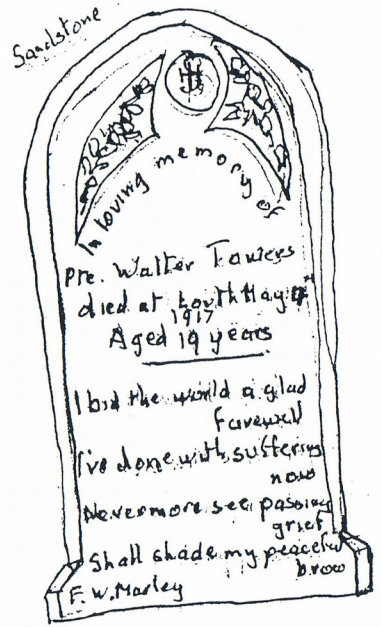 Sandstone
IHS
In loving memory of
Pte. Walter Towers
died at Louth May
1917
Aged 19 years
I bid the world a glad
farewell
I've done with suffering
now
Nevermore see passing
grief
Shall shade my peaceful
brow
F. W. Marley